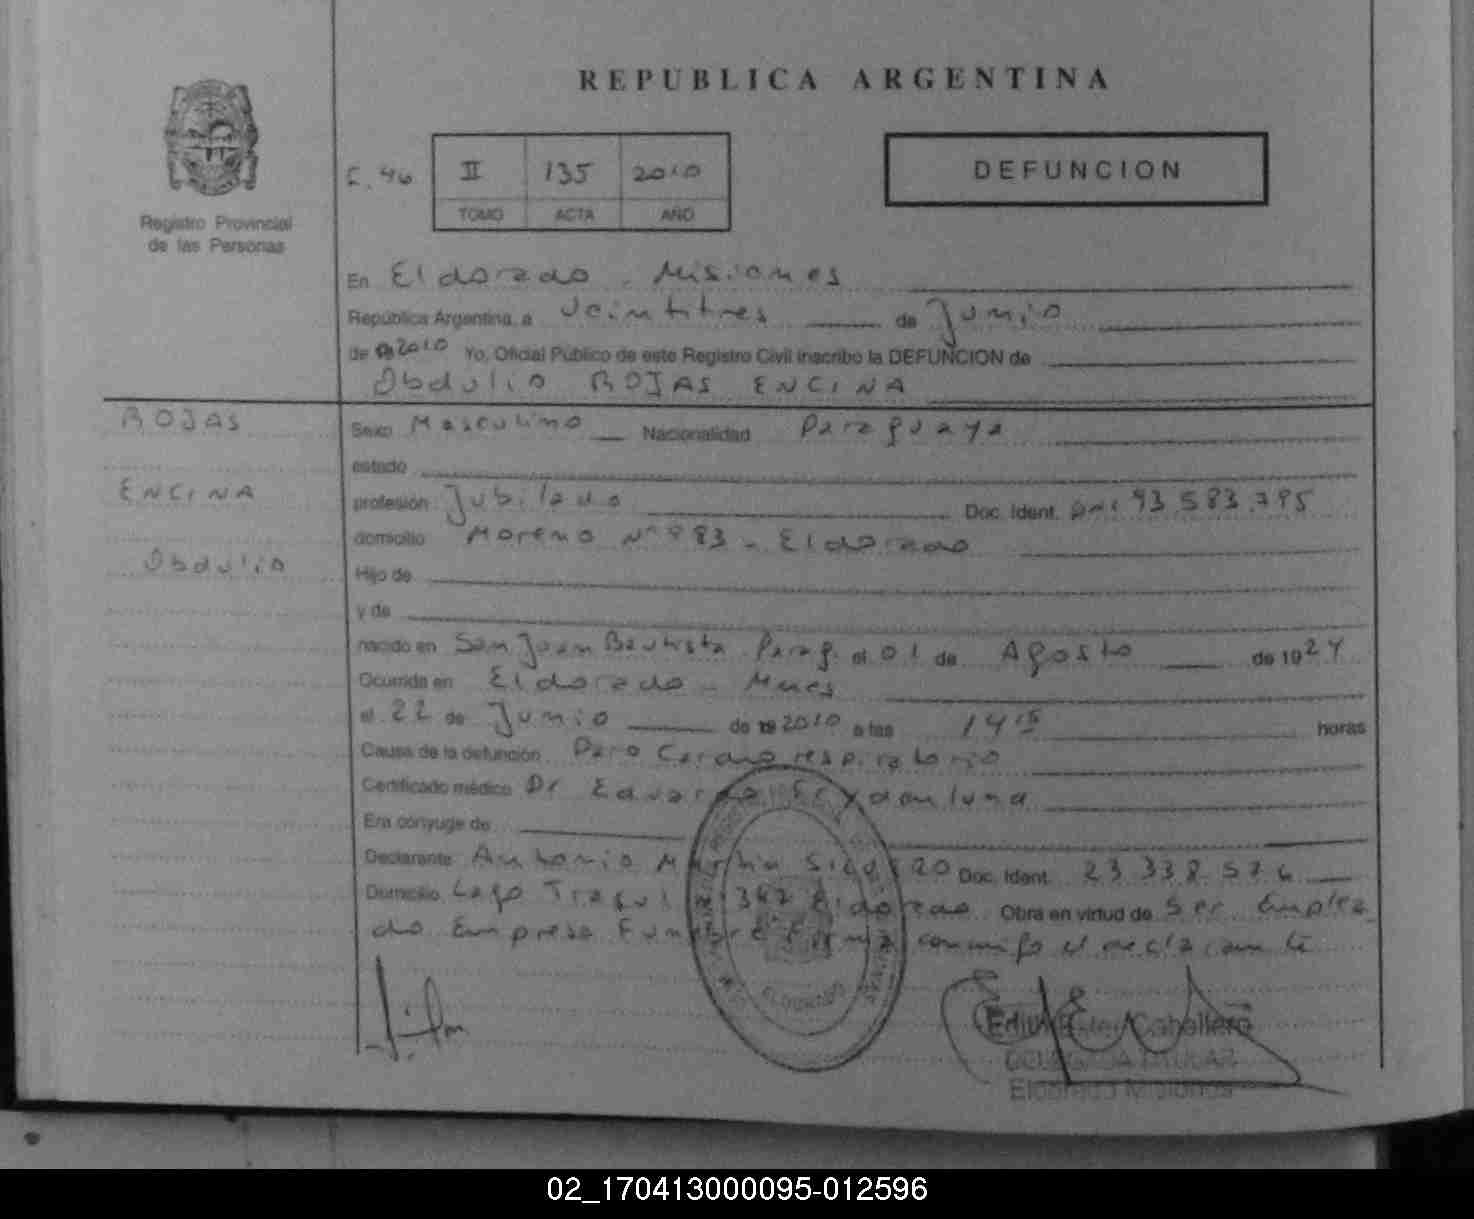 REPUBLICA ARGENTINA
Registro Provincial
de las Personas
II 135 2010
TOMO ACTA AÑO
DEFUNCION
En Eldorado. Misiones
República Argentina, a veintitres de Junio
de 2010 Yo, Oficial Público de este Registro Civil inscribo la DEFUNCION de
Obdulio ROJAS ENCINA
ROJAS
ENCINA
Obdulio
Sexo Masculino Nacionalidad Paraguaya
estado
profesión Jubilado Doc. Ident. DNI 93.583.795
domicilio Moreno Nº 883 - Eldorado
Hijo de
y de
nacido en San Juan Bautista Parag. el 01 de Agosto de 1924
Ocurrida en Eldorado - Mnes
el 22 de Junio de 2010 a las 14 15 horas
Causa de la defunción Paro Cardiorespiratorio
Certificado médico Dr Eduardo luna
Era cónyuge de
Declarante Antonio Martin Doc. Ident. 23.338.576
Domicilio Lago 342 Eldorado Obra en virtud de Ser Emplea
do Empresa Funebre Firma conmigo el declarante
ELDORADO
Edith Ester Caballero
DELEGADA TITULAR
Eldorado Misiones
02_170413000095-012596